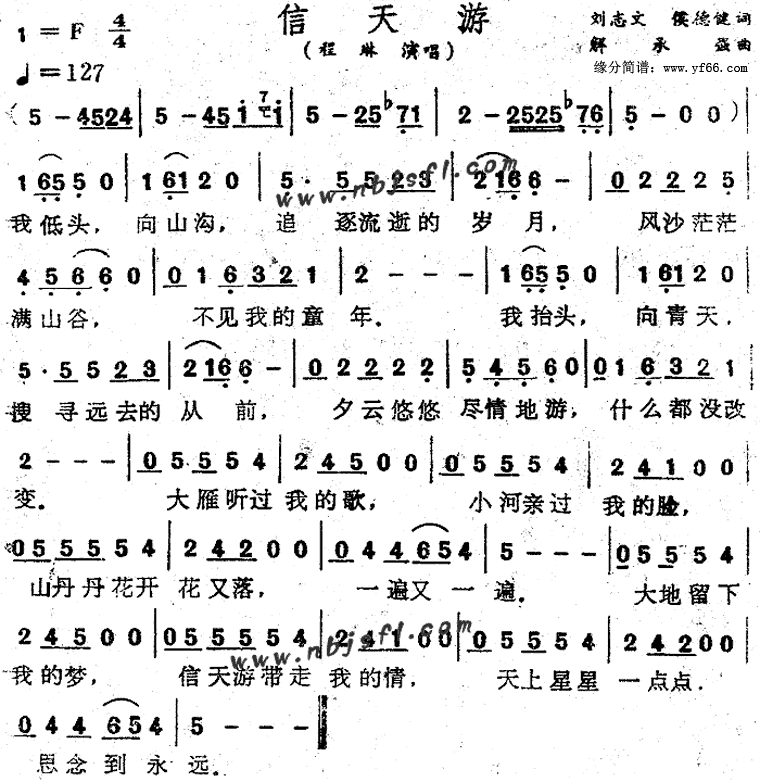 信天游
1 = F 4/4
(程琳 演唱)
刘志文 侯德健词
解承强曲
♩=127
缘分简谱：www.yf66.com
(5 - 4524 | 5 - 45 1 1 | 5 - 25 b71 | 2 - 2525 b76 | 5 - 0 0 )|
1 65 5 0 | 1 61 2 0 | 5. 5 5 2 3 | 2 16 6 - | 0 2 2 2 5
www.nbjsfl.com
我低头， 向山沟， 追 逐流逝的 岁 月， 风沙茫茫
4 5 6 6 0 | 0 1 6 3 2 1 | 2 - - - | 1 65 5 0 | 1 61 2 0 |
满山谷， 不见我的童 年． 我抬头， 向青天，
5. 5 5 2 3 | 2 16 6 - | 0 2 2 2 2 | 5 4 5 6 0 | 0 1 6 3 2 1 |
搜 寻远去的 从 前， 夕云悠悠 尽情地游， 什么都没改
2 - - - | 0 5 5 5 4 | 2 4 5 0 0 | 0 5 5 5 4 | 2 4 1 0 0 |
变． 大雁听过 我的歌， 小河亲过 我的脸，
0 5 5 5 5 4 | 2 4 2 0 0 | 0 4 4 6 5 4 | 5 - - - | 0 5 5 5 4 |
山丹丹花开 花又落， 一遍又 一 遍． 大地留下
2 4 5 0 0 | 0 5 5 5 5 4 | 2 4 1 0 0 | 0 5 5 5 4 | 2 4 2 0 0 |
www.nbjsfl.com
我的梦， 信天游带走 我的情， 天上星星 一点点．
0 4 4 6 5 4 | 5 - - - ‖
思念到永 远．